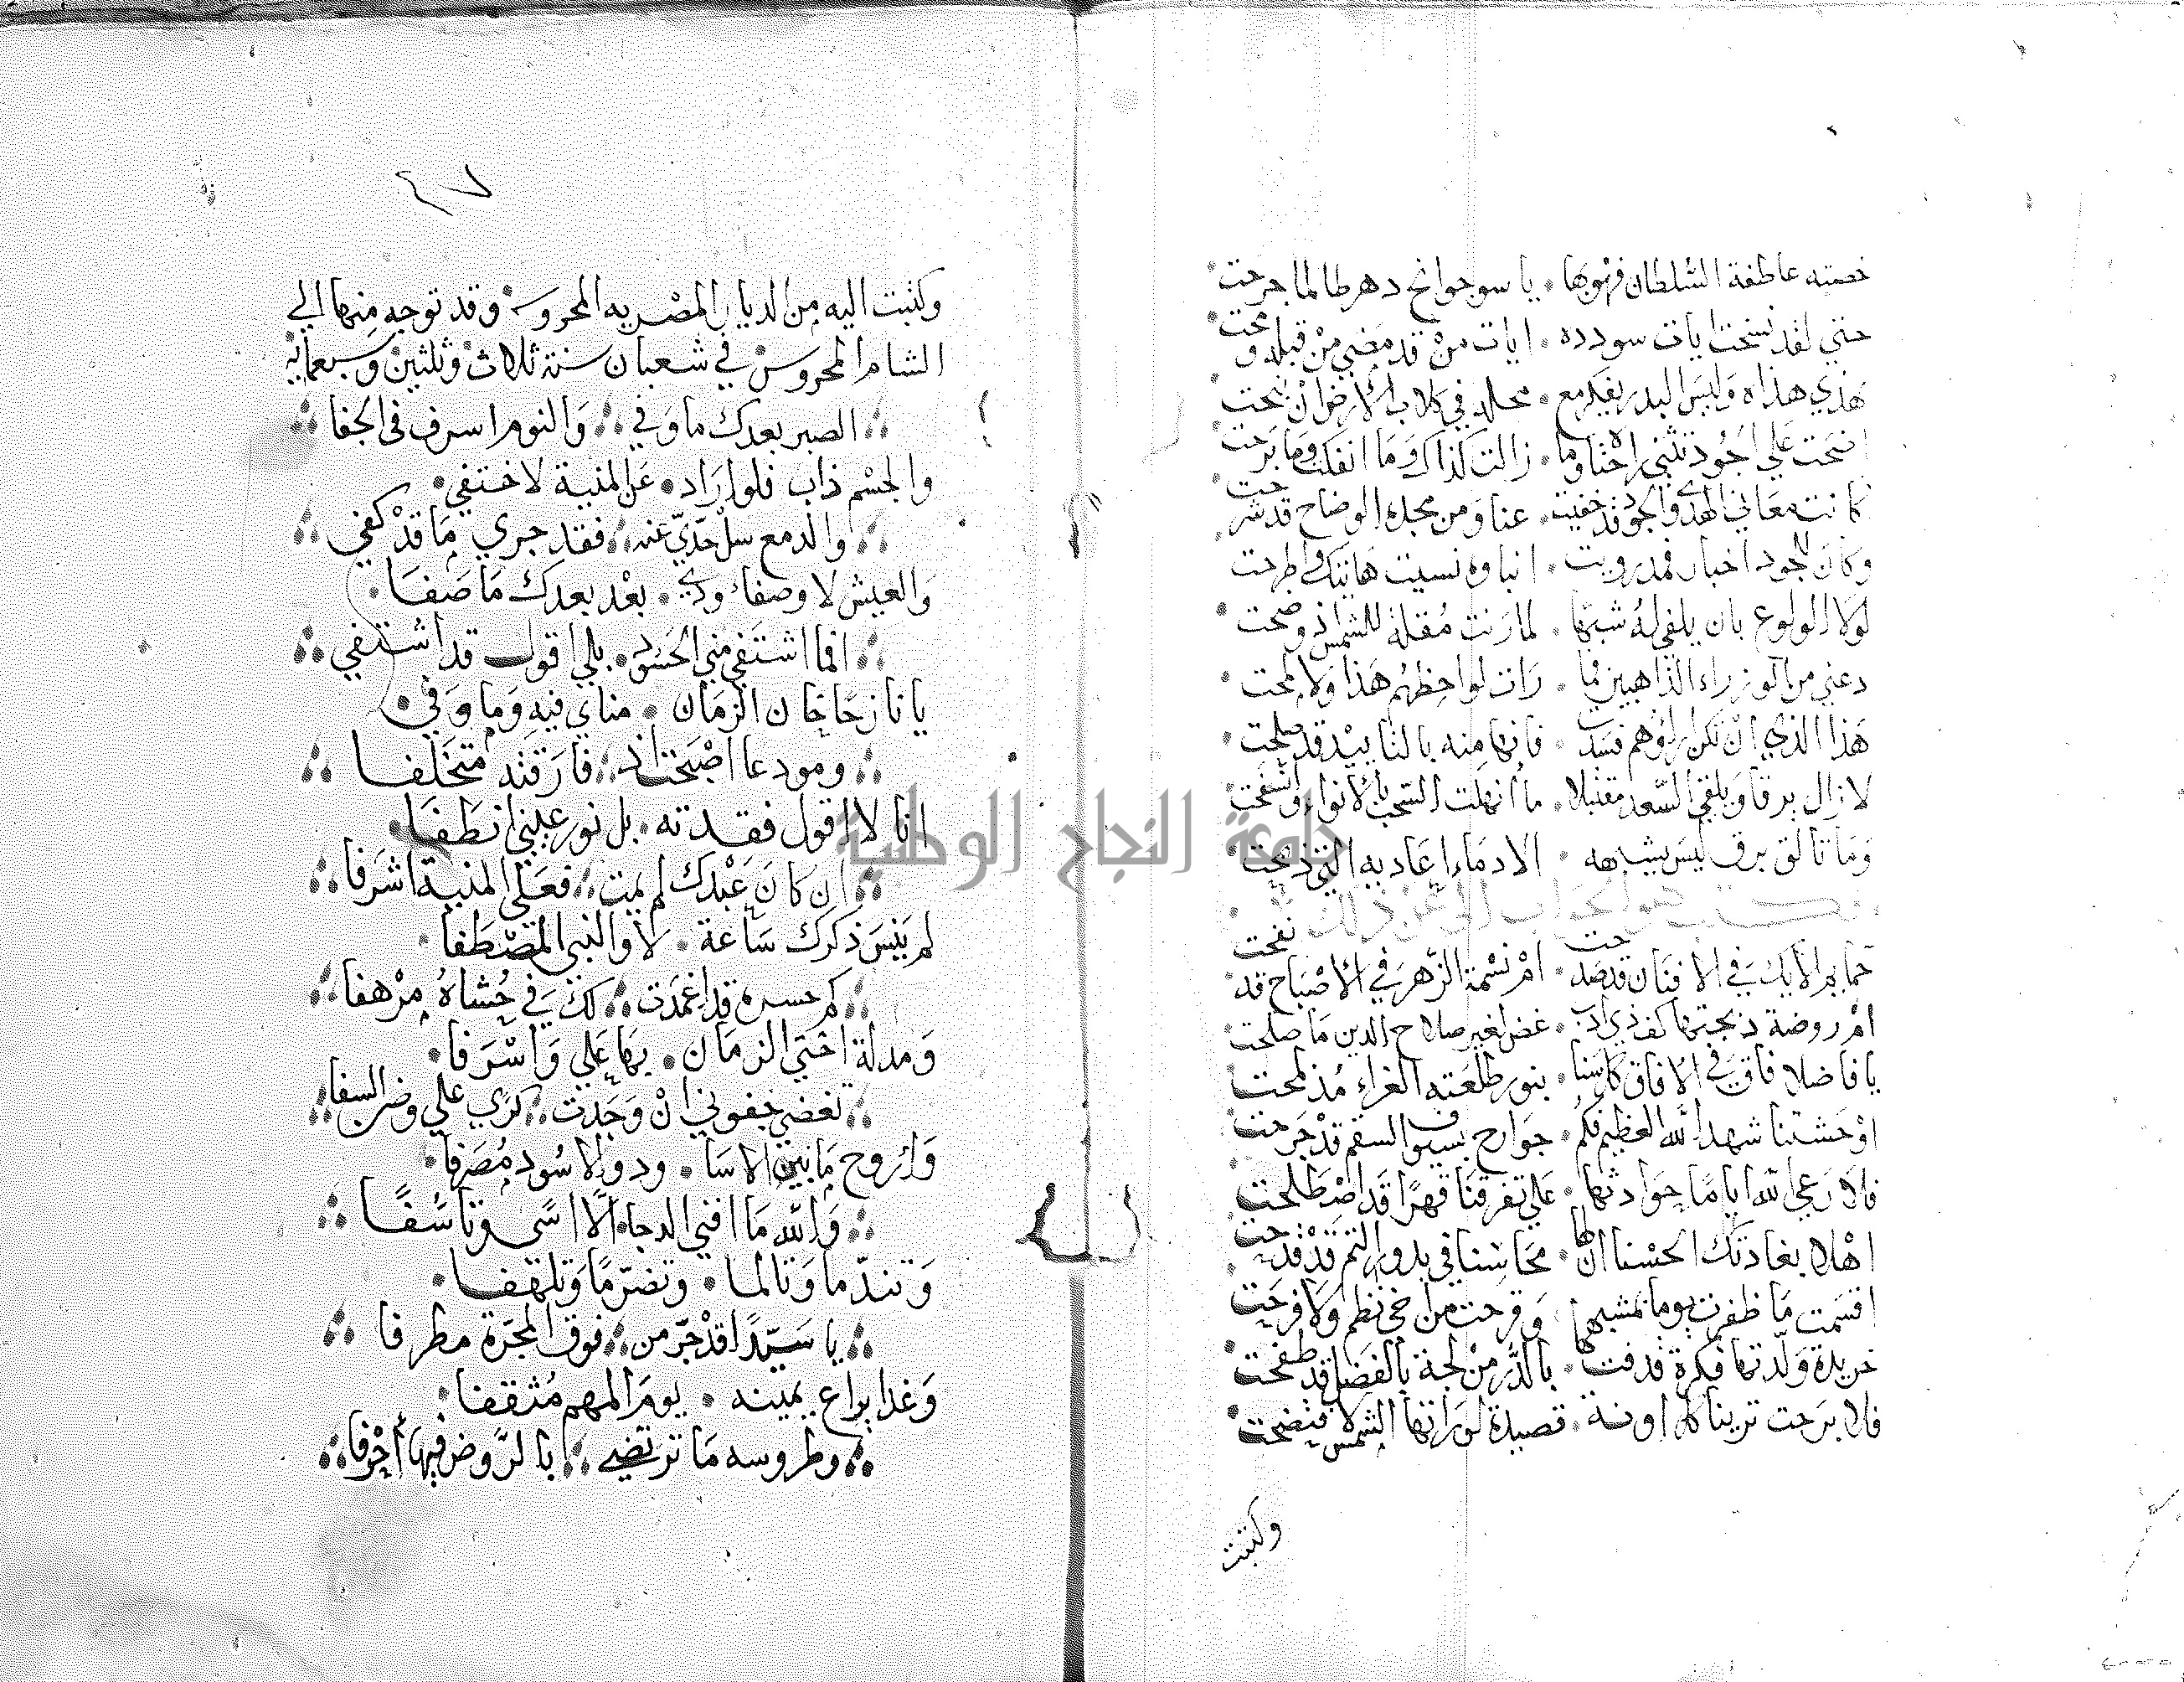 خصته عاطفة السلطان فهو بها . ياسو جوانح دهر طالما جرحت
حتي لقد نسخت ايات سودده . ايات من قد مضي من قبله ومحت
هذي هذاه وليس البدر يفكر مع . محله في كلاب الارض ان نبحت
اضحت علي الجود تثني راحتاه وما . زالت كذاك وما انفكت وما برحت
كانت معاني الهدي والجود قد خفيت . عنا ومن مجده الوضاح قد شرحت
وكان للجود اخبار قد رويت . انباوه نسيت هاتيك واطرحت
لولا الولوع بان يلفي له شبها . لما رنت مقلة للشمس اذ وضحت
دعني من الوزراء الذاهبين فما . رات لواحظهم هذا ولا لمحت
هذا الذي ان تكن اراوهم فسدت . فانها منه بالتاييد قد صلحت
لا زال يرقا ويلقي السعد مقتبلا . ما انهلت السحب بالانواء وانسفحت
وما تالق برق ليس يشبهه . الا دماء اعاديه التي ذبحت
فكتب هو الجواب الي عن ذلك
حمايم الايك في الافنان قد صدحت . ام نسمة الزهر في الاصباح قد نفحت
ام روضة دبجتها كف ذي ادب . غض لغير صلاح الدين ما صلحت
يا فاضلا فاق في الافاق كل سنا . بنور طلعته الغراء مذ لمحت
اوحشتنا شهد الله العظيم فكم . جوارح بسيوف السقم قد جرحت
فلا رعي الله اياما حوادثها . علي تفرقنا قهرا قد اصطلحت
اهلا بغادتك الحسنا ان لها . محاسنا في بدور التم قد قدحت
اقسمت ما ظفرت يوما بمشبهها . وقرحت من اخي نظم ولا فرحت
خريدة ولدتها فكرة قذفت . بالدر من لجة بالفضل قد طفحت
فلا برحت ترينا كل اونة . قصيدة لو راتها الشمس لافتضحت
وكتبت
٢٧
وكتبت اليه من الديار المصريه المحروسة وقد توجه منها الي
الشام المحروس في شعبان سنة ثلاث وثلثين وسبعمائة
الصبر بعدك ما وفي . والنوم اسرف في الجفا
والجسم ذاب فلو اراد . عن المنية لاختفي
والدمع سل خدي عنه . فقد جري ما قد كفي
والعيش لا وصفاء ودي . بعد بعدك ما صفا
افما اشتفي مني الحسود . بلي اقول قد اشتفي
يا نازحا خان الزمان . مناي فيه وما وفي
ومودعا اصبحت اذ . فارقته متخلفا
انا لا اقول فقدته . بل نور عيني انطفا
ان كان عبدك لم يمت . فعلي المنية اشرفا
لم ينس ذكرك ساعة . لا والنبي المصطفا
كم حسرة قد اغمدت . لك في حشاه مرهفا
ومذلة اخني الزمان . بها علي واسرفا
تغضي جفوني ان وجدت . كري علي وخز السفا
واروح ما بين الاسا . ود والاسود مصرفا
والله ما افني الدجا . الا اسى وتاسفا
وتندما وتالما . وتضرما وتلهفا
يا سيدا قد جر من . فوق المجرة مطرفا
وغدا يراع يمينه . يوم المهم مثقفا
وطروسه ما ترتضي . بالروض فيها احرفا
جامعة النجاح الوطنية